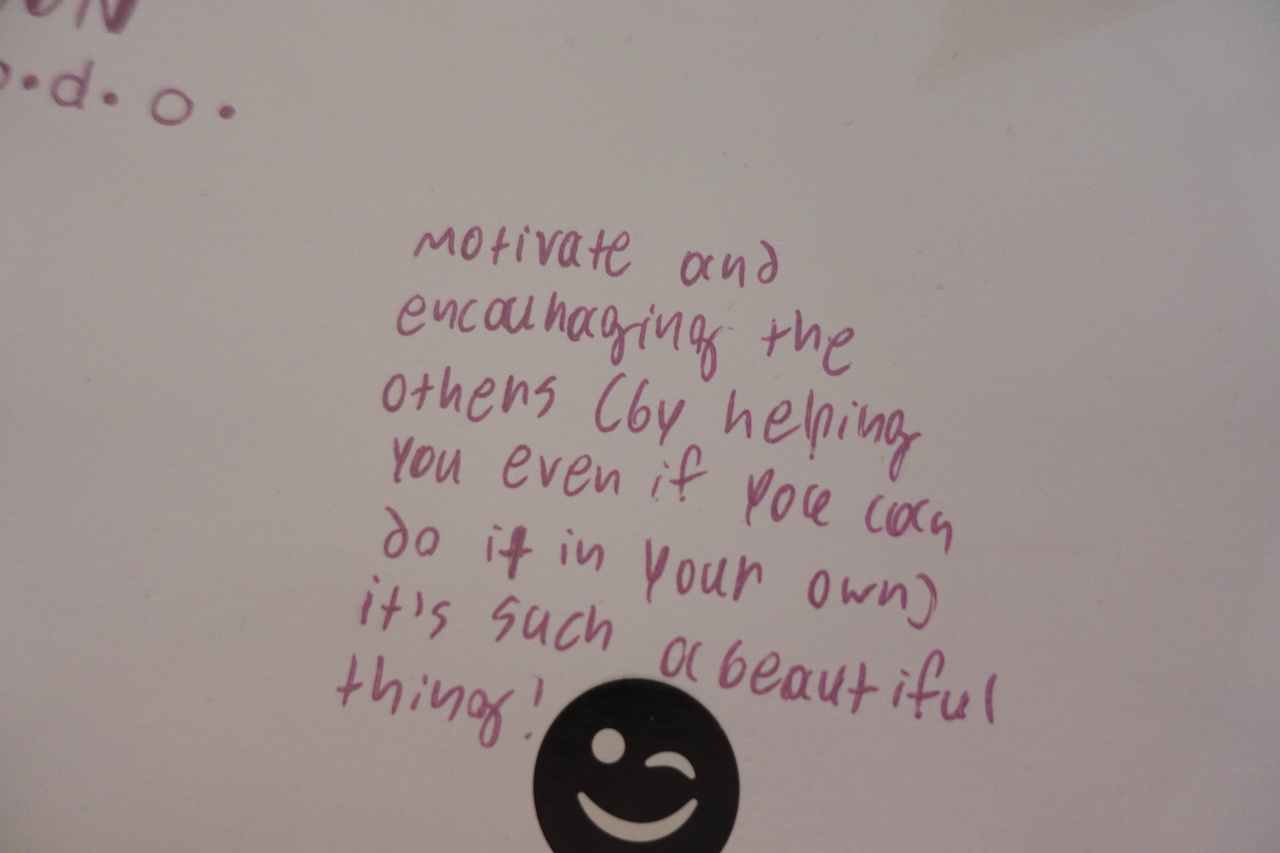 ON
o.d.o.
motivate and
encouraging the
others (by helping
you even if you can
do it in your own)
it's such a beautiful
thing!